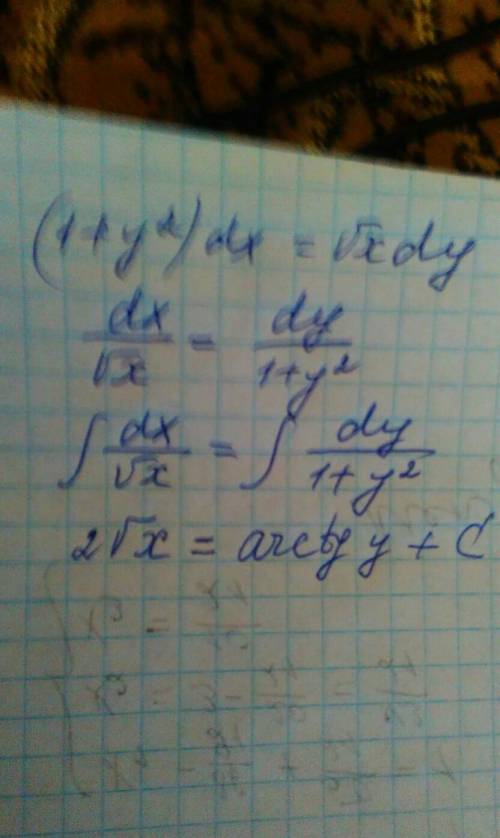 (1+y²)dx = √x dy
dx/√x = dy/(1+y²)
∫ dx/√x = ∫ dy/(1+y²)
2√x = arctg y + C